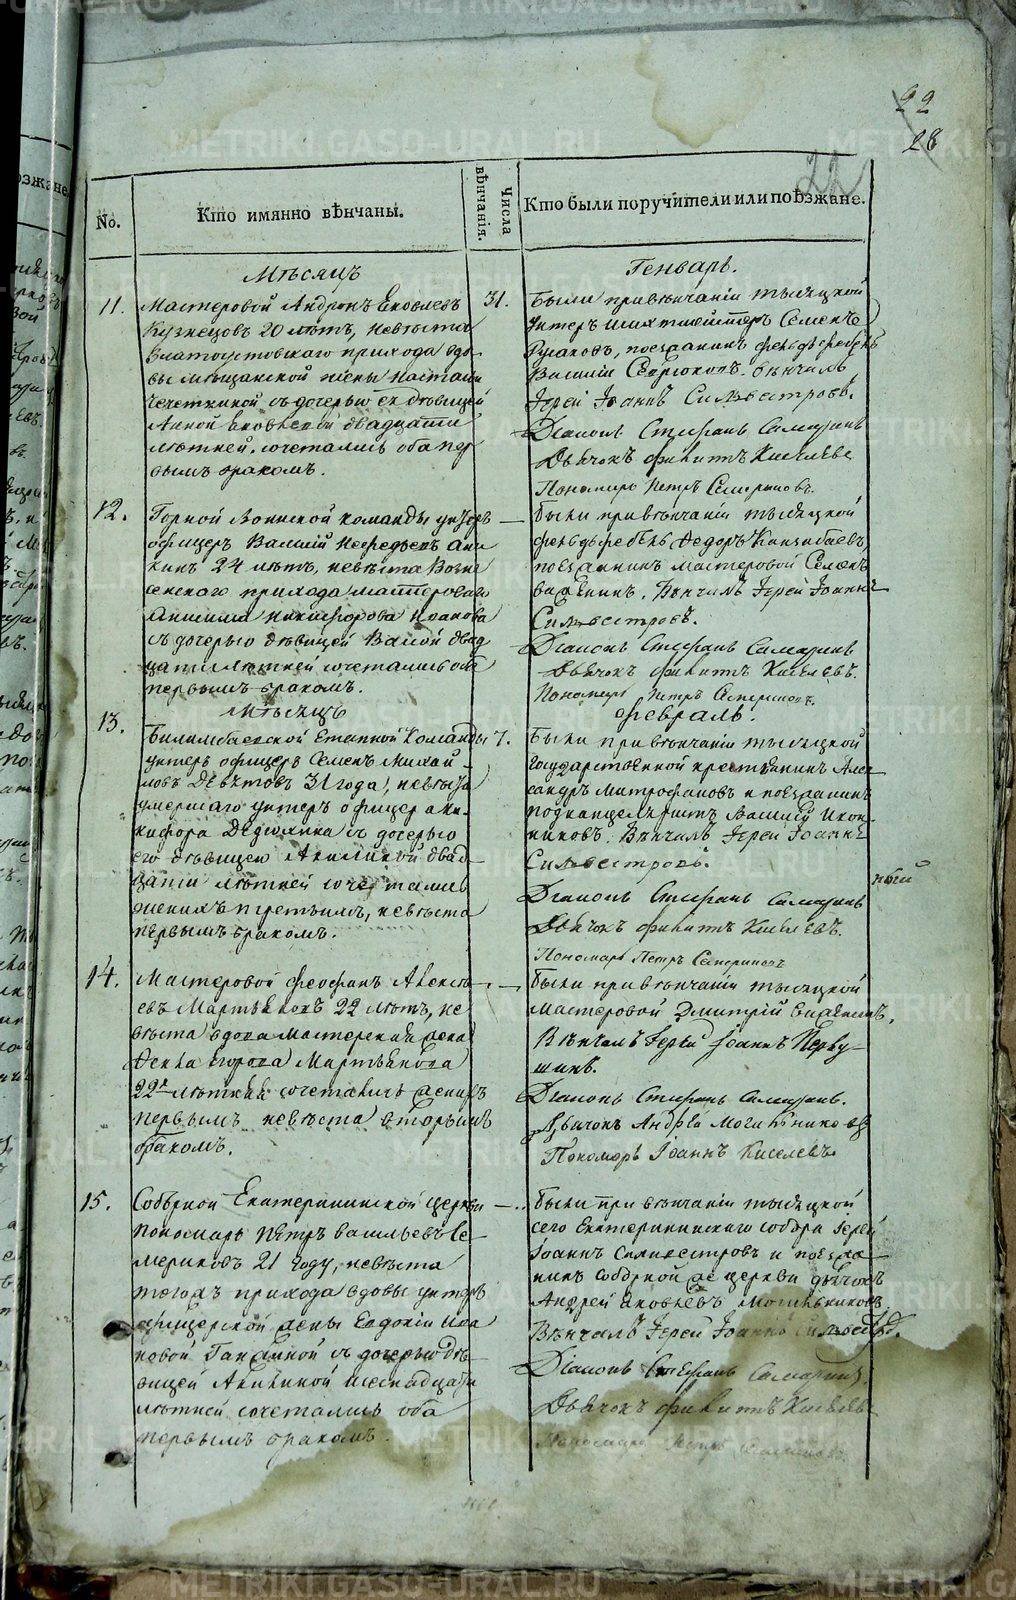 22
28
22
No.
Кто имянно вѣнчаны.
Числа вѣнчанія.
Кто были поручители или поѣзжане.
Мѣсяцъ
Генварь.
11.
Мастеровой Андронъ Яковлевъ
Кузнецовъ 20 лѣтъ, невѣста
Златоустовскаго прихода вдо-
вы мѣщанской жены Настасьи
Чечеткиной съ дочерью ея дѣвицей
Анной Яковлевой двадцати
лѣтней сочетались оба пер
вымъ бракомъ.
31.
Были при вѣнчаніи тысяцкой
унтеръ шихтмейстеръ Семенъ
Русаковъ, поезжанинъ фельдфебель
Василій Севрюковъ. вѣнчалъ
Іерей Іоаннъ Сильвестровъ.
Діаконъ Стефанъ Самаринъ
Дьячокъ Филиппъ Киселевъ
Пономарь Петръ Семериковъ.
12.
Горной Воинской команды унтеръ
офицеръ Василій Нефедьевъ Ани
кинъ 24 лѣтъ, невѣста Возне
сенскаго прихода мастероваго
Анисима Никифорова Иванова
съ дочерью дѣвицей двад
цати лѣтней сочетались оба
первымъ бракомъ.
Были при вѣнчаніи тысяцкой
фельдфебель Федоръ
поезжанинъ мастеровой Семенъ
Вѣнчалъ Іерей Іоаннъ
Сильвестровъ.
Діаконъ Стефанъ Самаринъ
Дьячокъ Филиппъ Киселевъ.
Пономарь Петръ Семериковъ.
Мѣсяцъ
Февраль.
13.
Билимбаевской Етапной Команды
унтеръ офицеръ Семенъ Михай-
ловъ Девятовъ 31 года, невѣста
умершаго унтеръ офицера Ни-
кифора Дедюхина съ дочерью
его дѣвицею Акилиной двад-
цати лѣтней сочетались
женихъ третьимъ, невѣста
первымъ бракомъ.
7.
Были при вѣнчаніи тысяцкой
государственной крестьянинъ Алек
сандръ Митрофановъ и поезжанинъ
подканцеляристъ Василій Икон-
никовъ. Вѣнчалъ Іерей Іоаннъ
Сильвестровъ.
Діаконъ Стефанъ Самаринъ
Дьячокъ Филиппъ Киселевъ.
Пономарь Петръ Семериковъ
14.
Мастеровой Феофанъ Алексѣ-
евъ Мартьяновъ 22 лѣтъ, не
вѣста вдова мастерская жена
Фекла Егорова Мартьянова
22х лѣтняя сочетались женихъ
первымъ невѣста вторымъ
бракомъ.
Были при вѣнчаніи тысяцкой
мастеровой Дмитрій
Вѣнчалъ Іерей Іоаннъ Перву-
шинъ.
Діаконъ Стефанъ Самаринъ.
Дьячокъ Андрей Могильниковъ
Пономарь Іоаннъ Киселевъ
15.
Соборной Екатерининской церкви
пономарь Петръ Васильевъ Се-
мериковъ 21 году, невѣста
тогожъ прихода вдовы унтеръ
офицерской жены Евдокіи Ива
новой съ дочерью дѣ-
вицей Акилиной шеснадцати
лѣтней сочетались оба
первымъ бракомъ.
Были при вѣнчаніи тысяцкой
сего Екатерининскаго собора Іерей
Іоаннъ Сильвестровъ и поезжа-
нинъ соборной же церкви дьячокъ
Андрей Яковлевъ Могильниковъ
Вѣнчалъ Іерей Іоаннъ Сильвестров.
Діаконъ Стефанъ Самаринъ.
Дьячокъ Филиппъ Киселевъ
Пономарь Петръ Семериковъ
METRIKI.GASO-URAL.RU